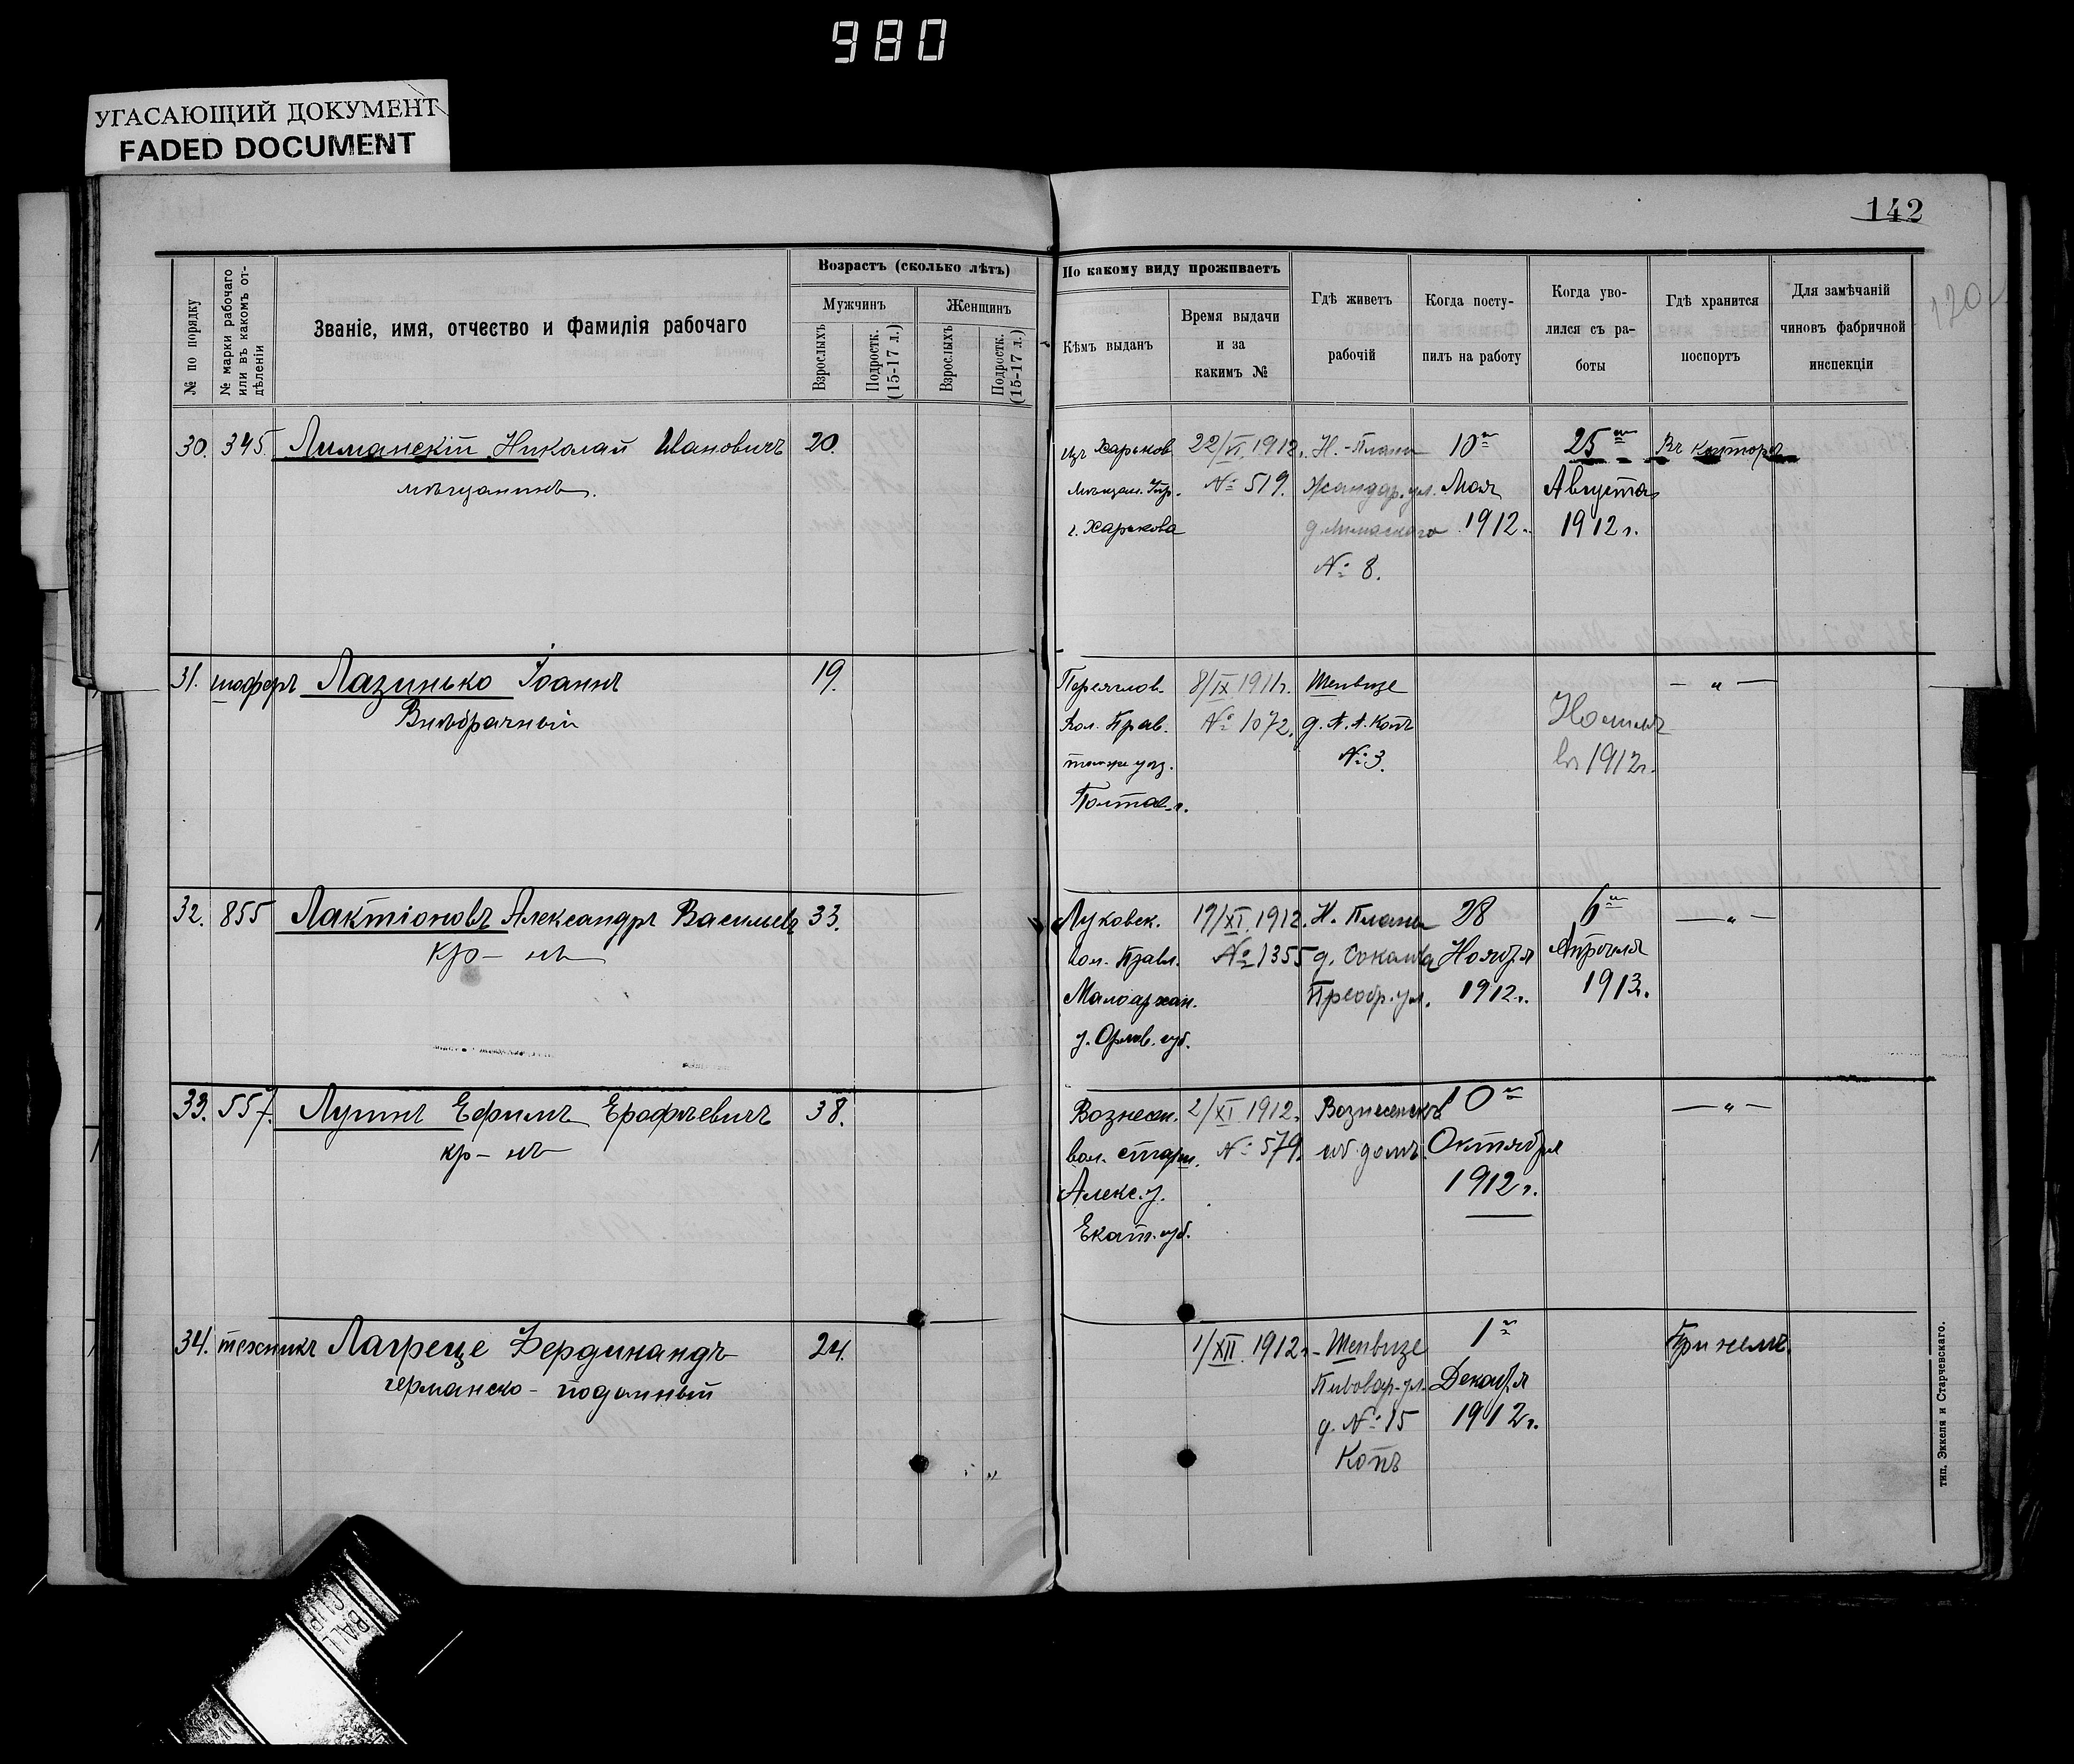 980
УГАСАЮЩИЙ ДОКУМЕНТ
FADED DOCUMENT
142
120
№ по порядку
№ марки рабочаго или въ какомъ отдѣленіи
Званіе, имя, отчество и фамилія рабочаго
Возрастъ (сколько лѣтъ)
Мужчинъ
Женщинъ
Взрослыхъ
Подростк. (15-17 л.)
Взрослыхъ
Подростк. (15-17 л.)
По какому виду проживаетъ
Кѣмъ выданъ
Время выдачи и за какимъ №
Гдѣ живетъ рабочій
Когда поступилъ на работу
Когда уволился съ работы
Гдѣ хранится поспортъ
Для замѣчаній чиновъ фабричной инспекціи
30. 345. Лиманскій Николай Ивановичъ 20.
мѣщанинъ.
изъ Харьков. 22/VI 1912г. Н.-Планы 10го 25го Въ конторѣ
Мѣщан. Упр. № 519. Жандар. ул. Мая Августа
г. Харькова 1912г. 1912г.
№ 8.
31. шоферъ Лазинько Іоаннъ 19.
Внѣбрачный
Переяслов. 8/IX 1911г. Шенвизе — " —
Вол. Прав. № 1072. д. А. А. Копъ
тоже уѣз. № 3. въ 1912г.
Полтав. г.
32. 855 Лактіоновъ Александръ Васильевъ 33.
кр-нъ
Луковск. 17/XI 1912г. Н. Планы 28 6го — " —
вол. Правл. № 1355 д. Соколова Ноября Апрѣля
Малоархан. Преобр. ул. 1912г. 1913г.
у. Орлов. губ.
33. 557. Лупинъ Ефимъ Ерофѣевичъ 38.
кр-нъ
Вознесен. 2/XI 1912г. Вознесенскъ 10го — " —
вол. старш. № 579. соб. домъ. Октября
Алекс. у. 1912г.
Екат. губ.
34. техникъ Лагреце Фердинандъ 24.
германско-подданный
1/XII 1912г. Шенвизе 1го При немъ.
Пивовар. ул. Декабря
д. № 15 1912г.
Копъ
тип. Эккеля и Старчевскаго.
BALL
CLIP